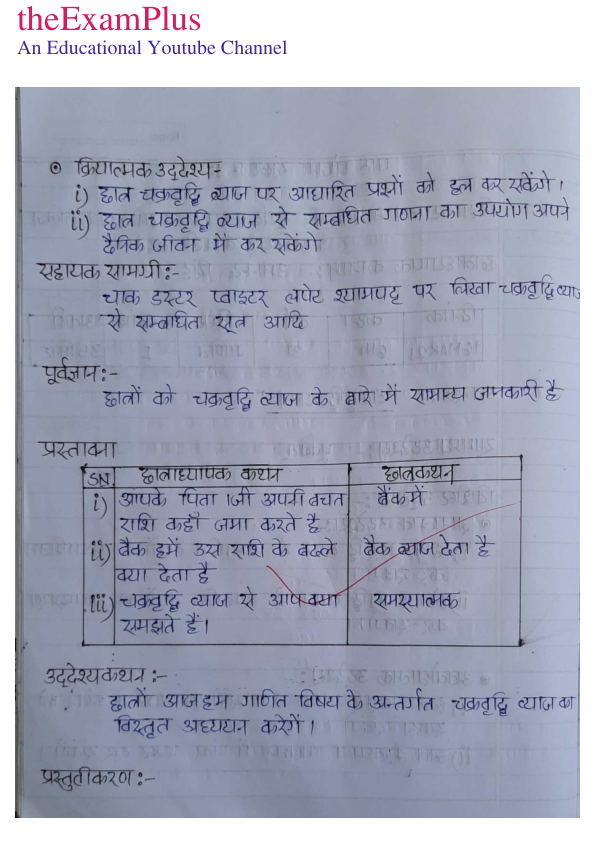 theExamPlus
An Educational Youtube Channel
क्रियात्मक उद्देश्य-
i) छात्र चक्रवृद्धि ब्याज पर आधारित प्रश्नों को हल कर सकेंगे।
ii) छात्र चक्रवृद्धि ब्याज से सम्बंधित गणना का उपयोग अपने
दैनिक जीवन में कर सकेंगे
सहायक सामग्री:-
चाक डस्टर प्वाइटर लपेट श्यामपट्ट पर लिखा चक्रवृद्धि ब्याज
से सम्बंधित सूत्र आदि
पूर्वज्ञान:-
छात्रों को चक्रवृद्धि ब्याज के बारे में सामान्य जानकारी है
प्रस्तावना
SN छात्राध्यापक कथन छात्रकथन
i) आपके पिता जी अपनी बचत बैंक में
राशि कहाँ जमा करते है
ii) बैंक हमें उस राशि के बदले बैंक ब्याज देता है
क्या देता है
iii) चक्रवृद्धि ब्याज से आप क्या समस्यात्मक
समझते हैं।
उद्देश्यकथन:-
छात्रों आज हम गणित विषय के अन्तर्गत चक्रवृद्धि ब्याज का
विस्तृत अध्ययन करेगें।
प्रस्तुतीकरण:-